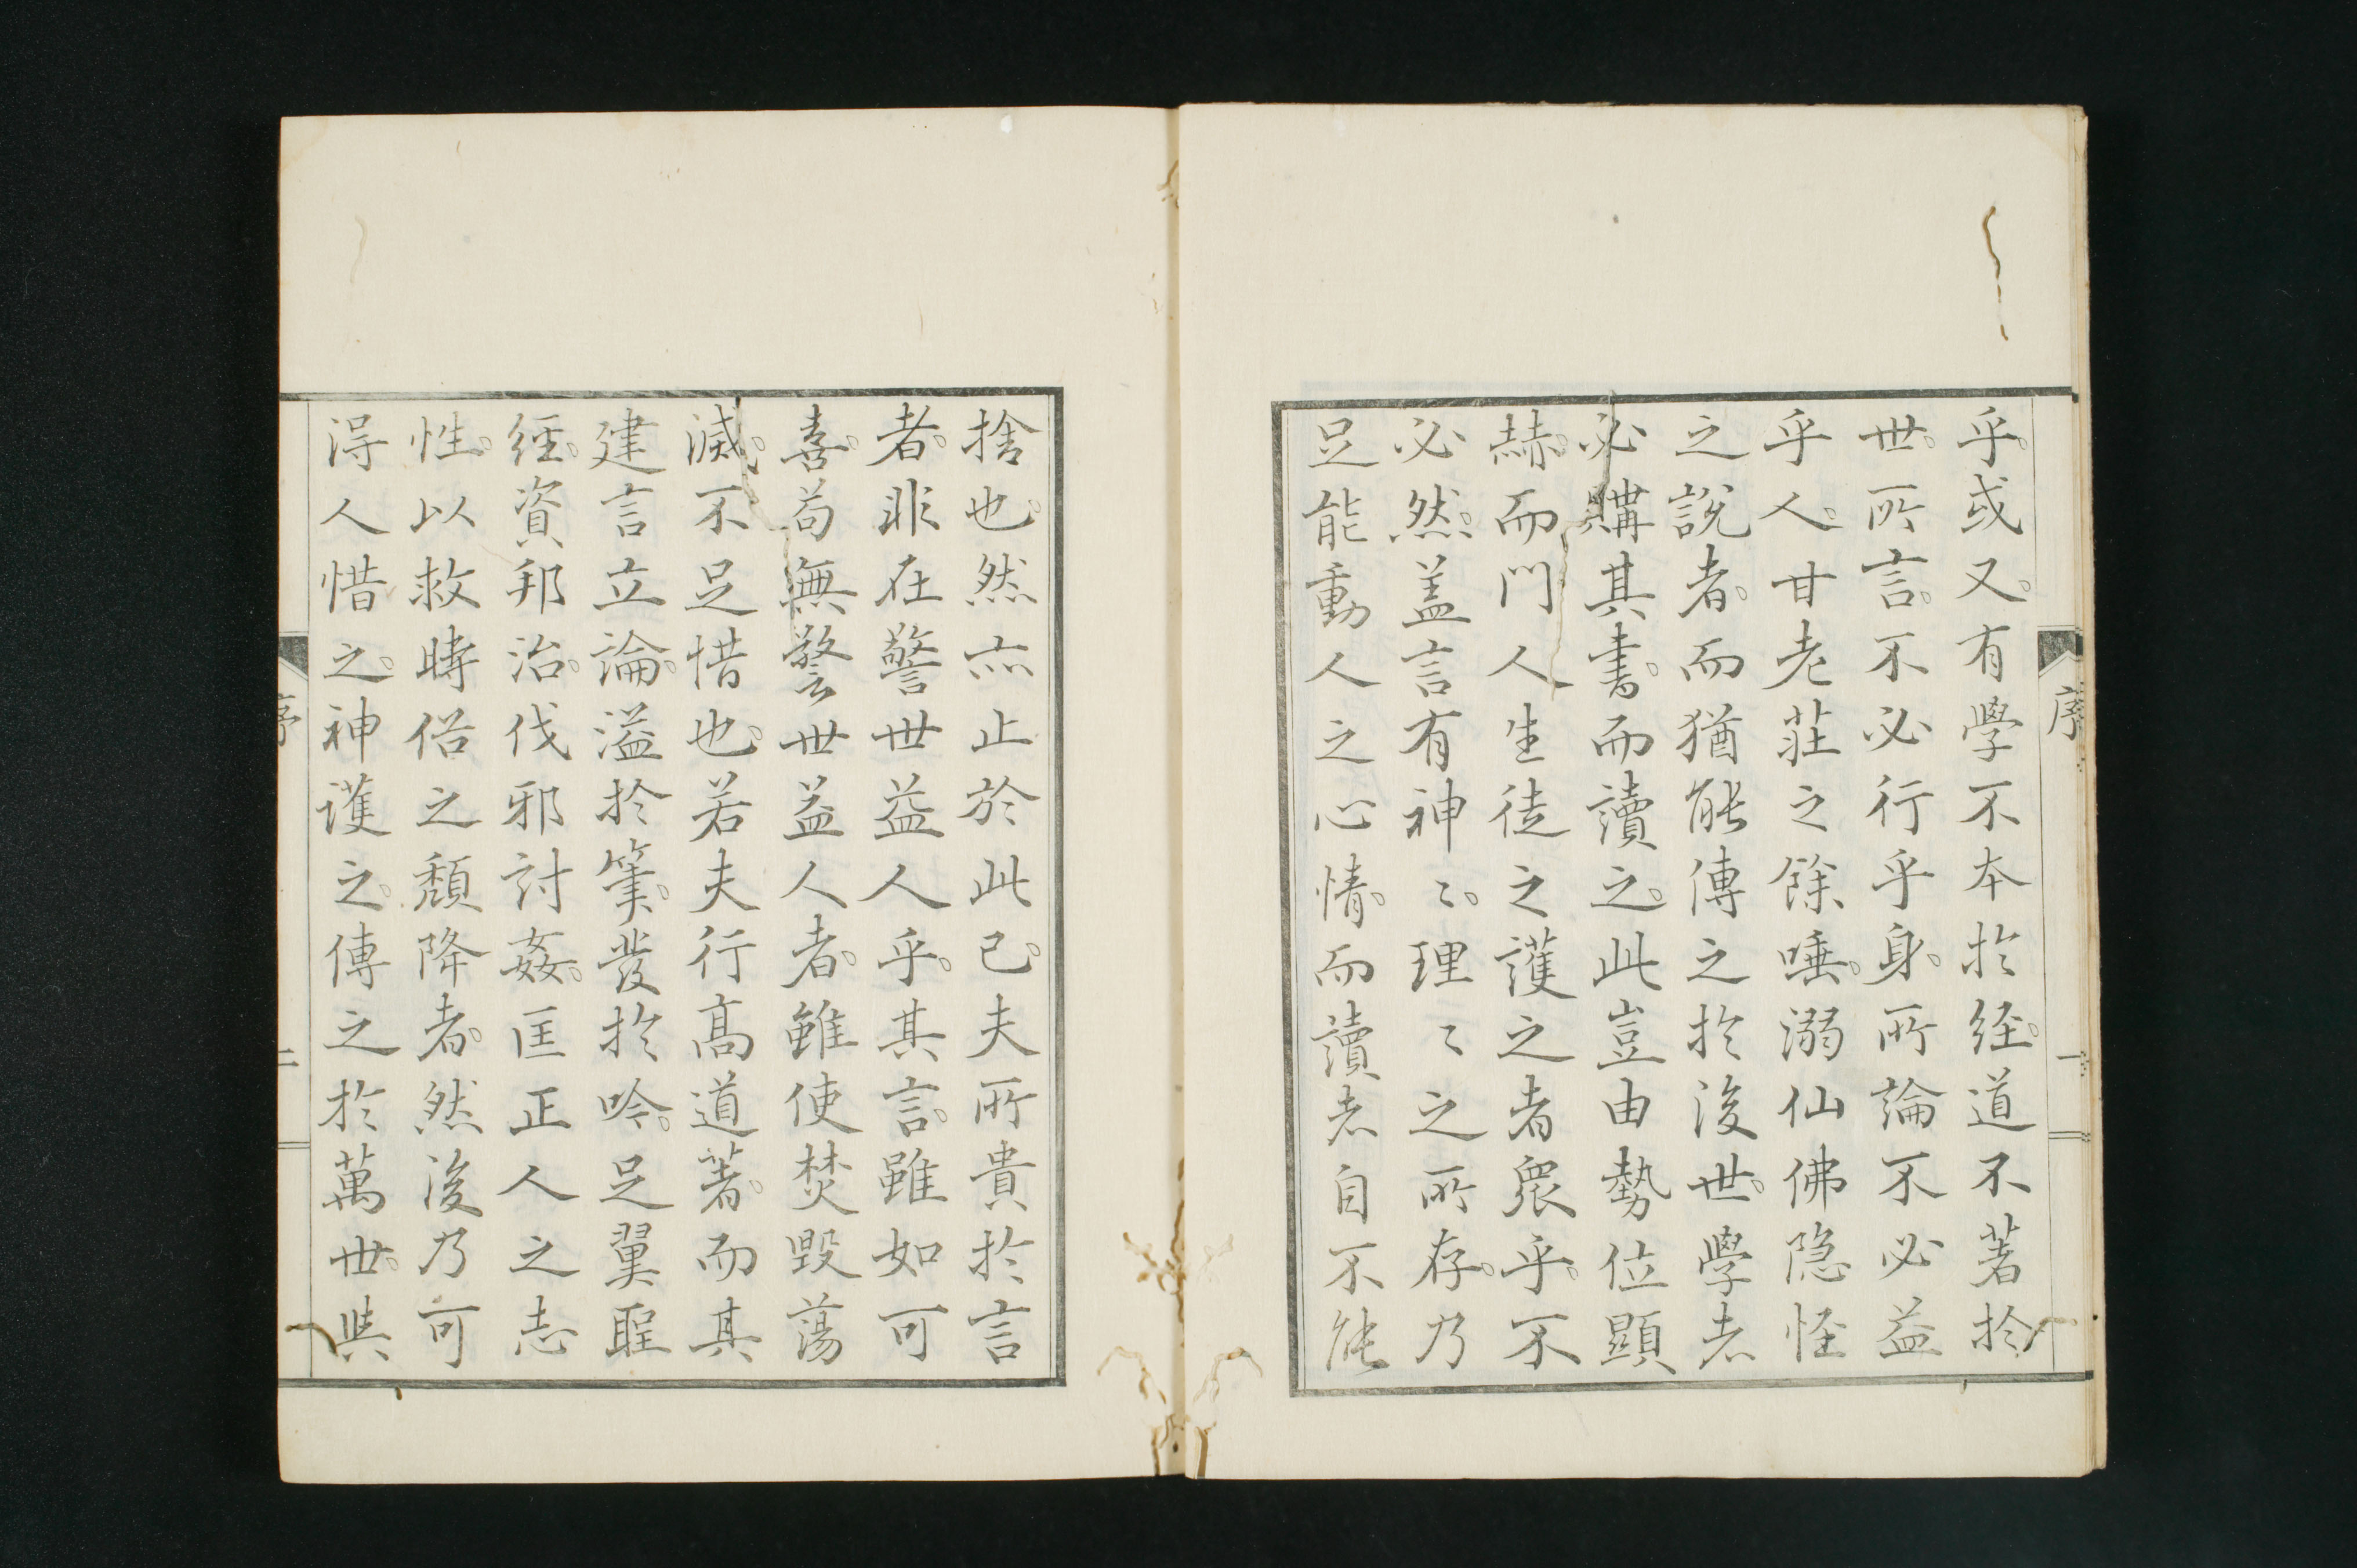 序
一
乎。或又。有學不本於經。道不著於
世。所言。不必行乎身。所論不必益
乎人。甘老莊之餘唾。溺仙佛隐怪
之說者。而猶能傳之於後世。學者
必購其書。而讀之。此豈由勢位顯
赫。而門人生徒之護之者衆乎。不
必然。盖言有神〻。理〻之所存。乃
足能動人之心情。而讀者自不能
捨也。然亦止於此已。夫所貴於言
者。非在警世益人乎。其言。雖如可
喜。苟無警世益人者。雖使焚毀蕩
滅。不足惜也。若夫行高道著。而其
建言立論。溢於筆。發於吟。足翼聖
經。資邦治。伐邪討姦。匡正人之志
性。以救時俗之頽降者。然後乃可
得人惜之。神護之。傳之於萬世。與
序
二